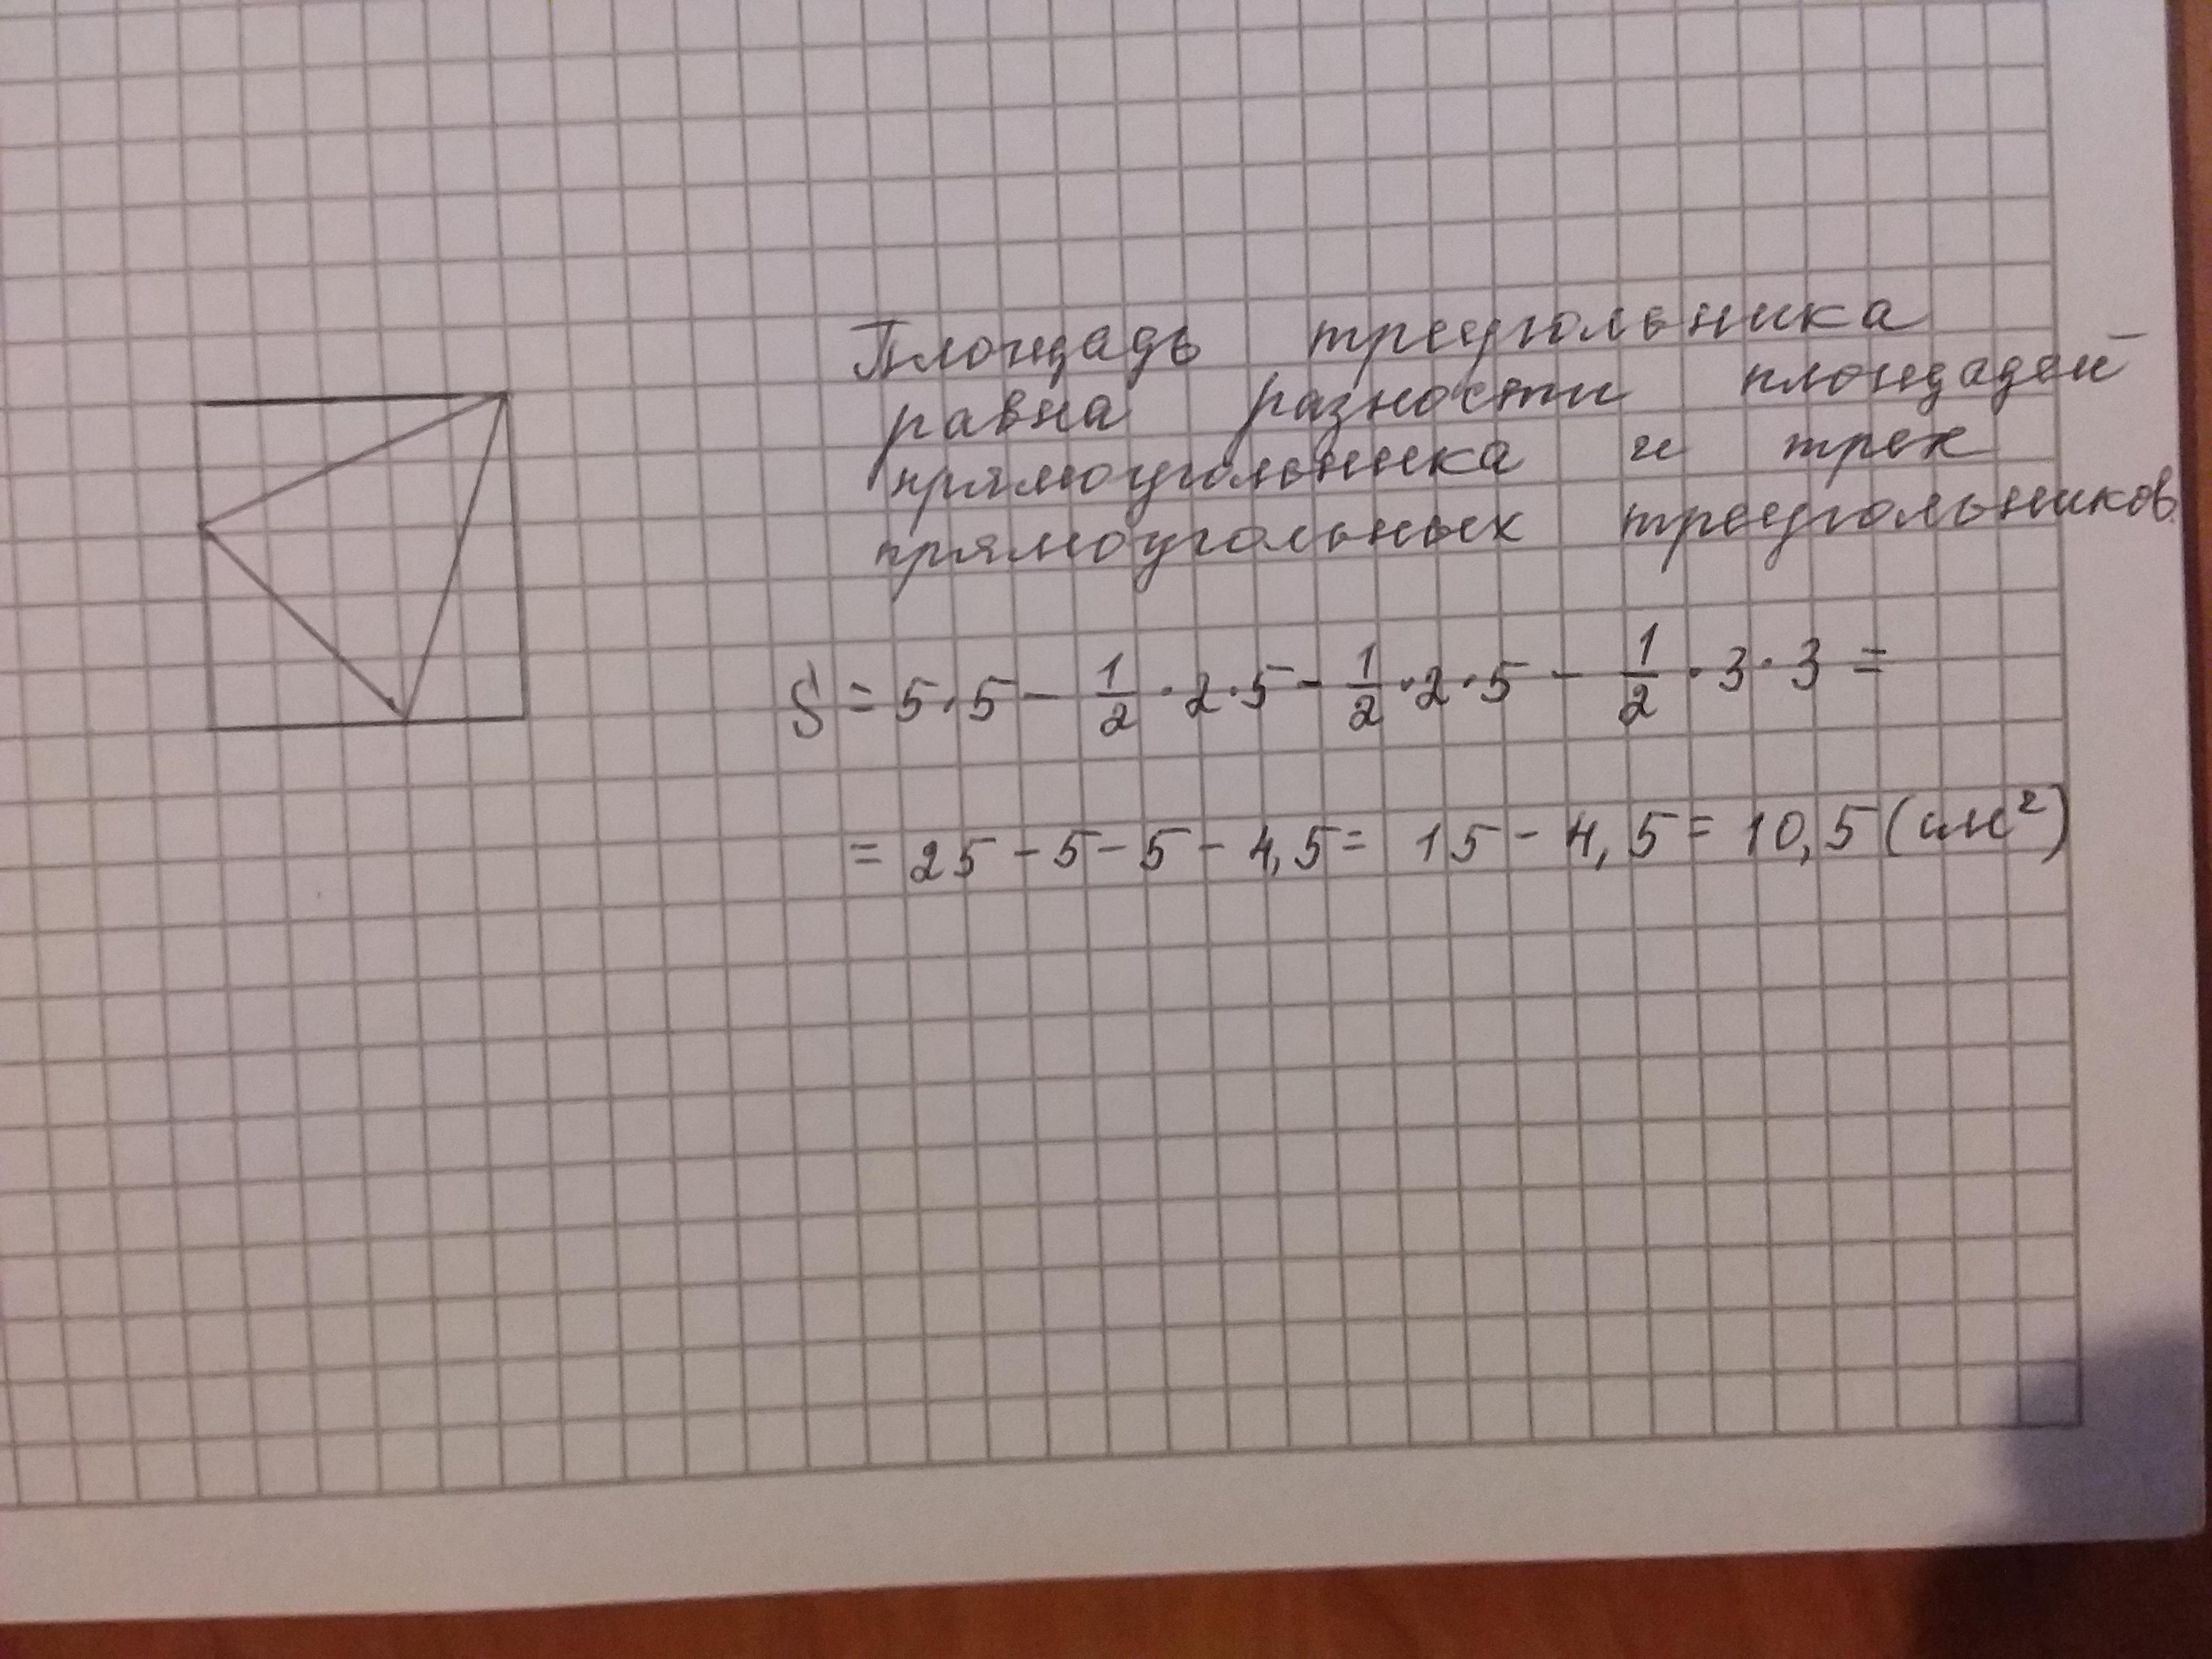 Площадь треугольника
равна разности площадей
прямоугольника и трех
прямоугольных треугольников.
S = 5·5 - 1/2 · 2·5 - 1/2 · 2·5 - 1/2 · 3·3 =
= 25 - 5 - 5 - 4,5 = 15 - 4,5 = 10,5 (см²)